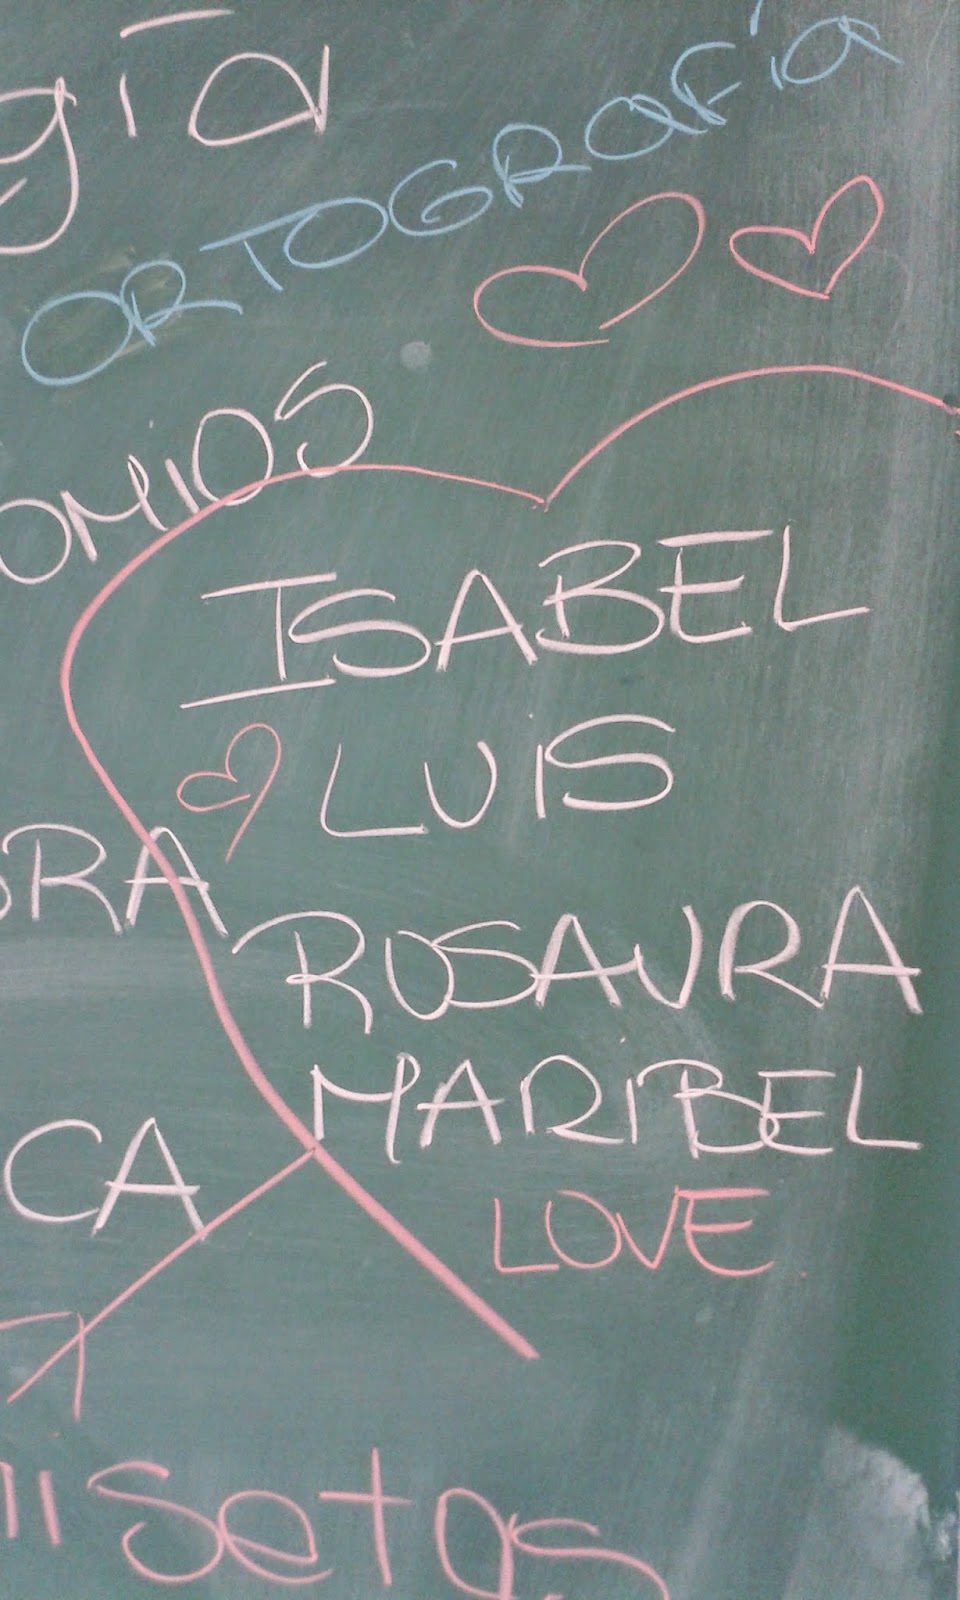 gía
ORTOGRAFíA
OMiOS
ISABEL
LUIS
BRA
ROSAURA
MARIBEL
CA
LOVE
setas